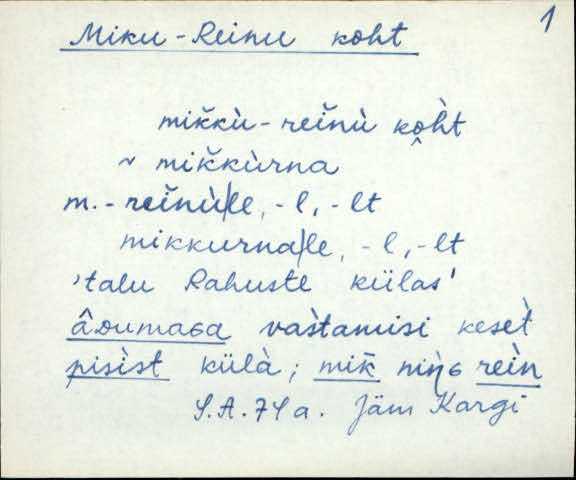 1
Miku-Reinu koht
mik̆kù-reĭnù ko̭h̀t
~ mik̆kùrna
m.-reĭnù|le, -l, -lt
mikkurna|le, -l, -lt
'talu Rahuste külas'
âᴅumaɢa vas̀tamisi keset̀
pisìst külà; mik̄ niŋ̀ɢ reìn
S.A. 74 a. Jäm Kargi